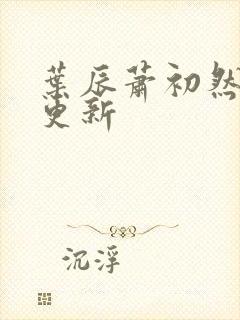 葉辰蕭初然
更新
沉浮